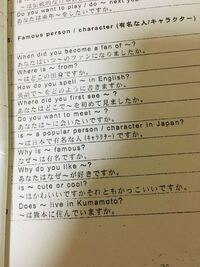 Do you want to play / do ~ next
あなたは来年~をしたいですか。
Famous person / character (有名な人/キャラクター)
When did you become a fan of ~?
あなたはいつ~のファンになりましたか。
Where is ~ from?
~はどこの出身ですか。
How do you spell ~ in English?
英語で~をどのように書きますか。
Where did you first see ~ ?
あなたはどこで~を初めて見ましたか。
Do you want to meet ~ ?
あなたは~に会いたいですか。
a popular person / character in Japan?
~は日本で有名な人(キャラクター)ですか。
Why is ~ famous?
なぜ~は有名ですか。
Why do you like ~?
あなたはなぜ~が好きですか。
Is ~ cute or cool?
~はかわいいですかそれともかっこいいですか。
Does ~ live in Kumamoto?
~は熊本に住んでいますか。